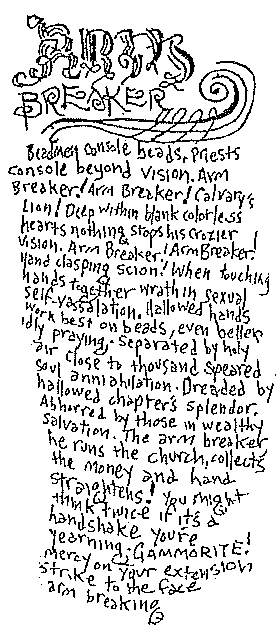 ARM'S
BREAKER
Beadmen console beads, Priests
console beyond vision. Arm
Breaker! Arm Breaker! Calvary's
Lion! Deep within blank colorless
hearts nothing stops his crozier
vision. Arm Breaker! Arm Breaker!
Hand clasping scion! When touching
hands together wrath in sexual
self-vassalation. Hallowed hands
work best on beads, even better
idly praying. Separated by holy
air close to thousand speared
soul anniahilation. Dreaded by
hallowed chapter's splendor.
Abhorred by those in wealthy
salvation. The arm breaker
he runs the church, collects
the money and hand
straightens! You might
think twice if it's a
handshake you're
yearning; GAMMORITE!
mercy on your extension
strike to the face
arm breaking